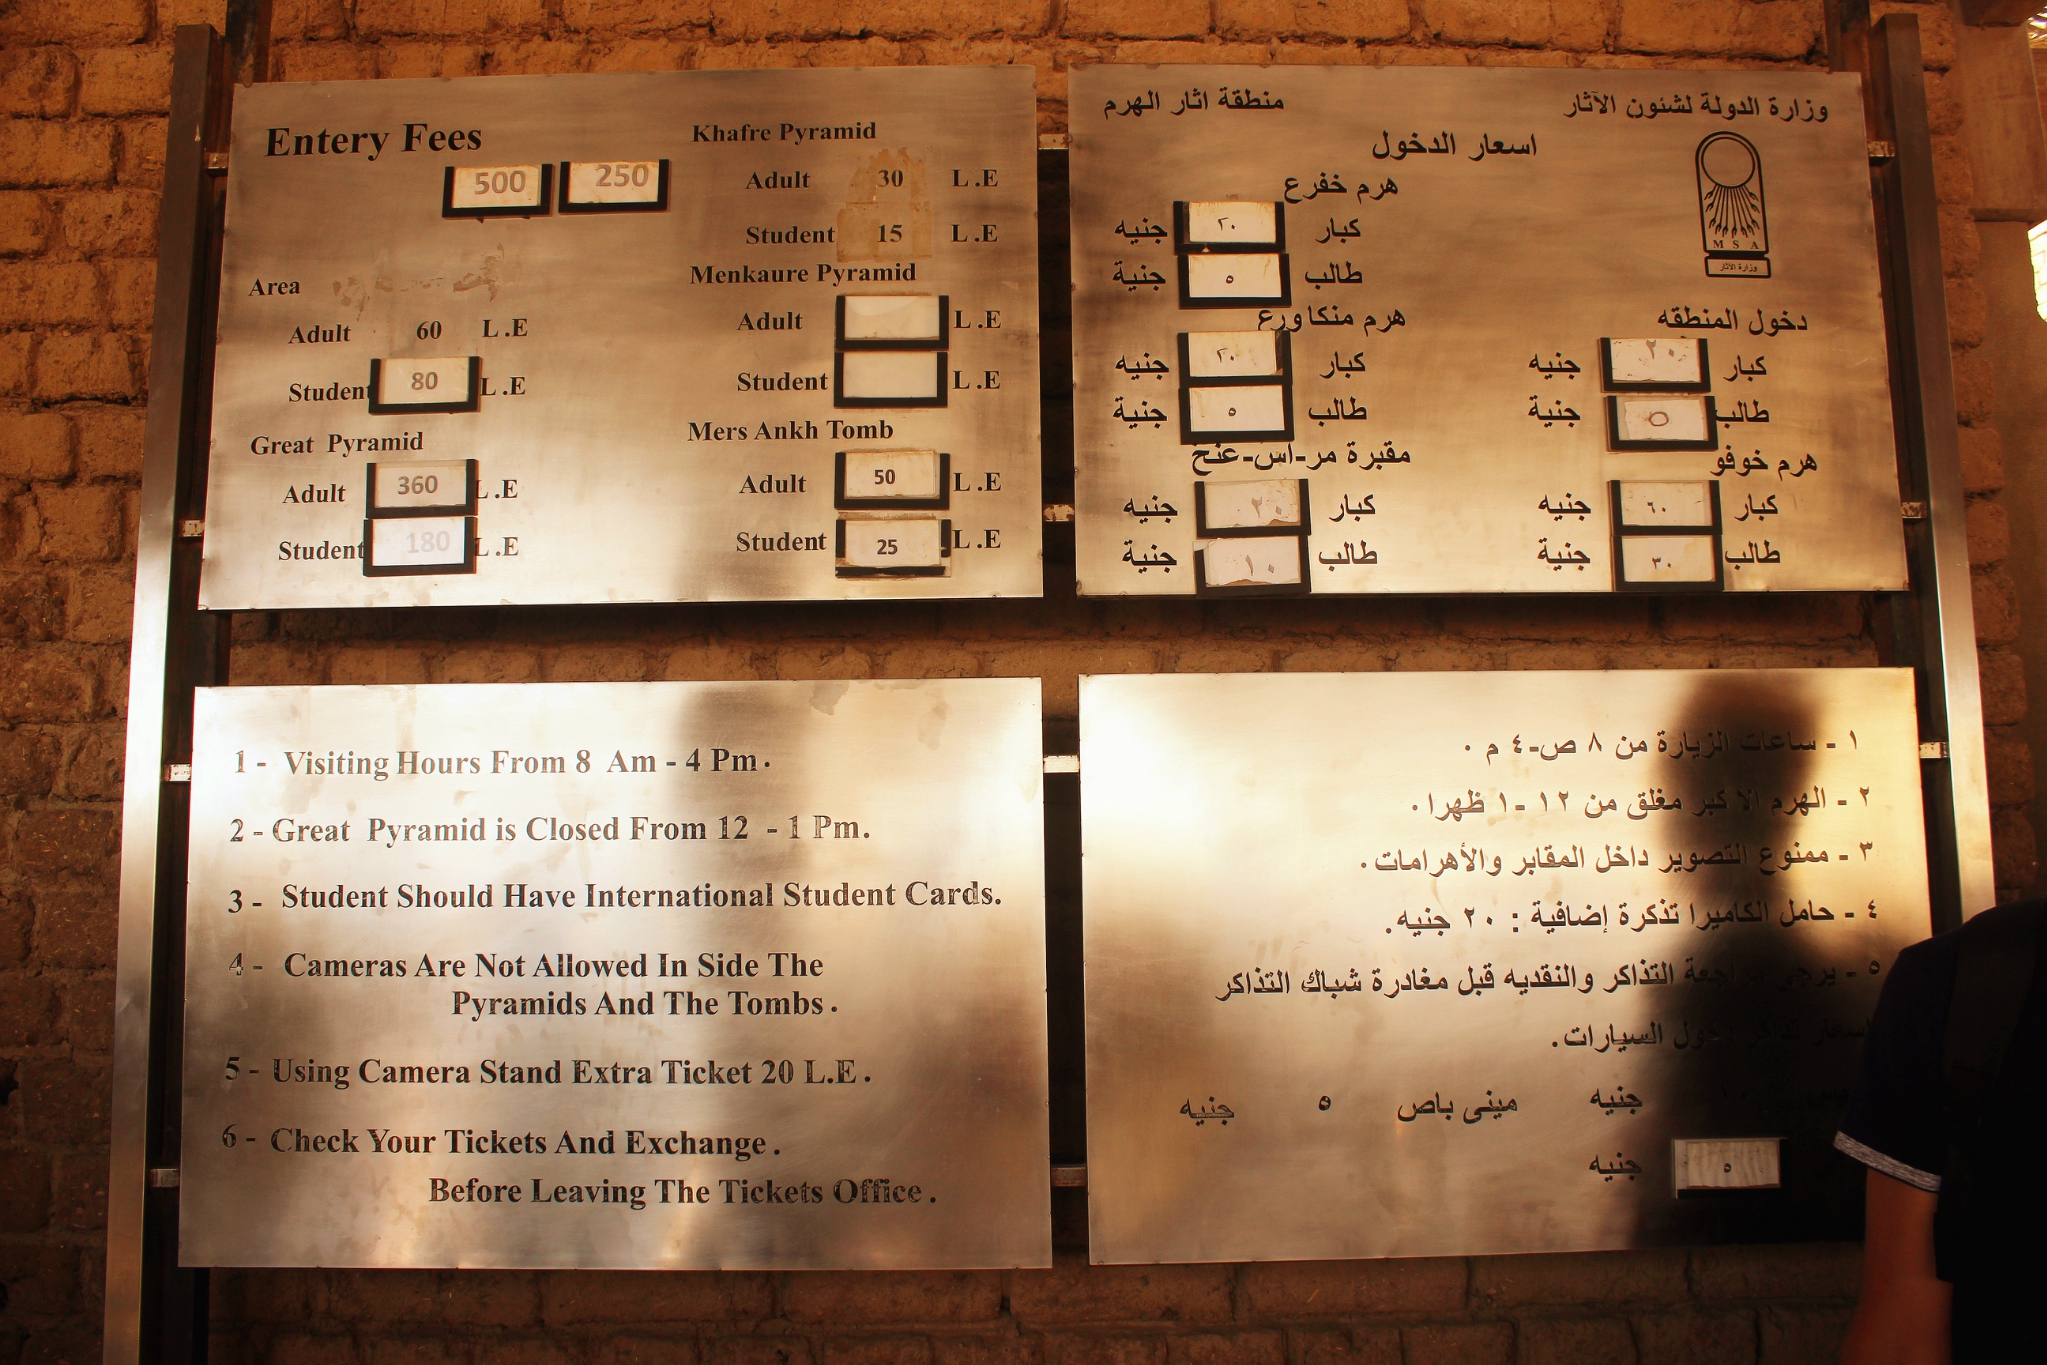 Entery Fees
500 250
Area
Adult 60 L.E
Student 80 L.E
Great Pyramid
Adult 360 L.E
Student 180 L.E
Khafre Pyramid
Adult 30 L.E
Student 15 L.E
Menkaure Pyramid
Adult L.E
Student L.E
Mers Ankh Tomb
Adult 50 L.E
Student 25 L.E
وزارة الدولة لشئون الآثار
منطقة اثار الهرم
اسعار الدخول
M S A
وزارة الآثار
دخول المنطقه
كبار ٢٠ جنيه
طالب ٥ جنية
هرم خوفو
كبار ٦٠ جنيه
طالب ٣٠ جنية
هرم خفرع
كبار ٢٠ جنيه
طالب ٥ جنية
هرم منكاورع
كبار ٢٠ جنيه
طالب ٥ جنية
مقبرة مر-اس-عنخ
كبار ٢٠ جنيه
طالب ١٠ جنية
1 - Visiting Hours From 8 Am - 4 Pm.
2 - Great Pyramid is Closed From 12 - 1 Pm.
3 - Student Should Have International Student Cards.
4 - Cameras Are Not Allowed In Side The
Pyramids And The Tombs.
5 - Using Camera Stand Extra Ticket 20 L.E.
6 - Check Your Tickets And Exchange.
Before Leaving The Tickets Office.
١ - ساعات الزيارة من ٨ ص-٤ م .
٢ - الهرم الاكبر مغلق من ١٢ -١ ظهرا.
٣ - ممنوع التصوير داخل المقابر والأهرامات.
٤ - حامل الكاميرا تذكرة إضافية : ٢٠ جنيه.
٥ - يرجى مراجعة التذاكر والنقديه قبل مغادرة شباك التذاكر
اسعار تذاكر دخول السيارات.
جنيه مينى باص ٥ جنيه
٥ جنيه